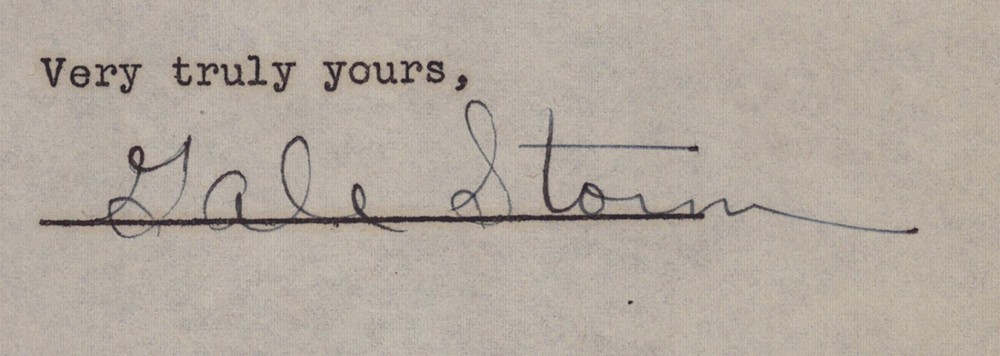 Very truly yours,
Gale Storm